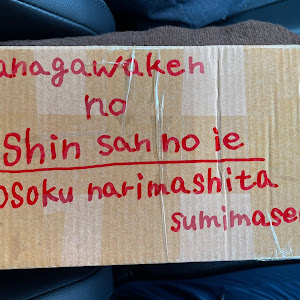 anagawaken
no
Shin san no ie
osoku narimashita
sumimase